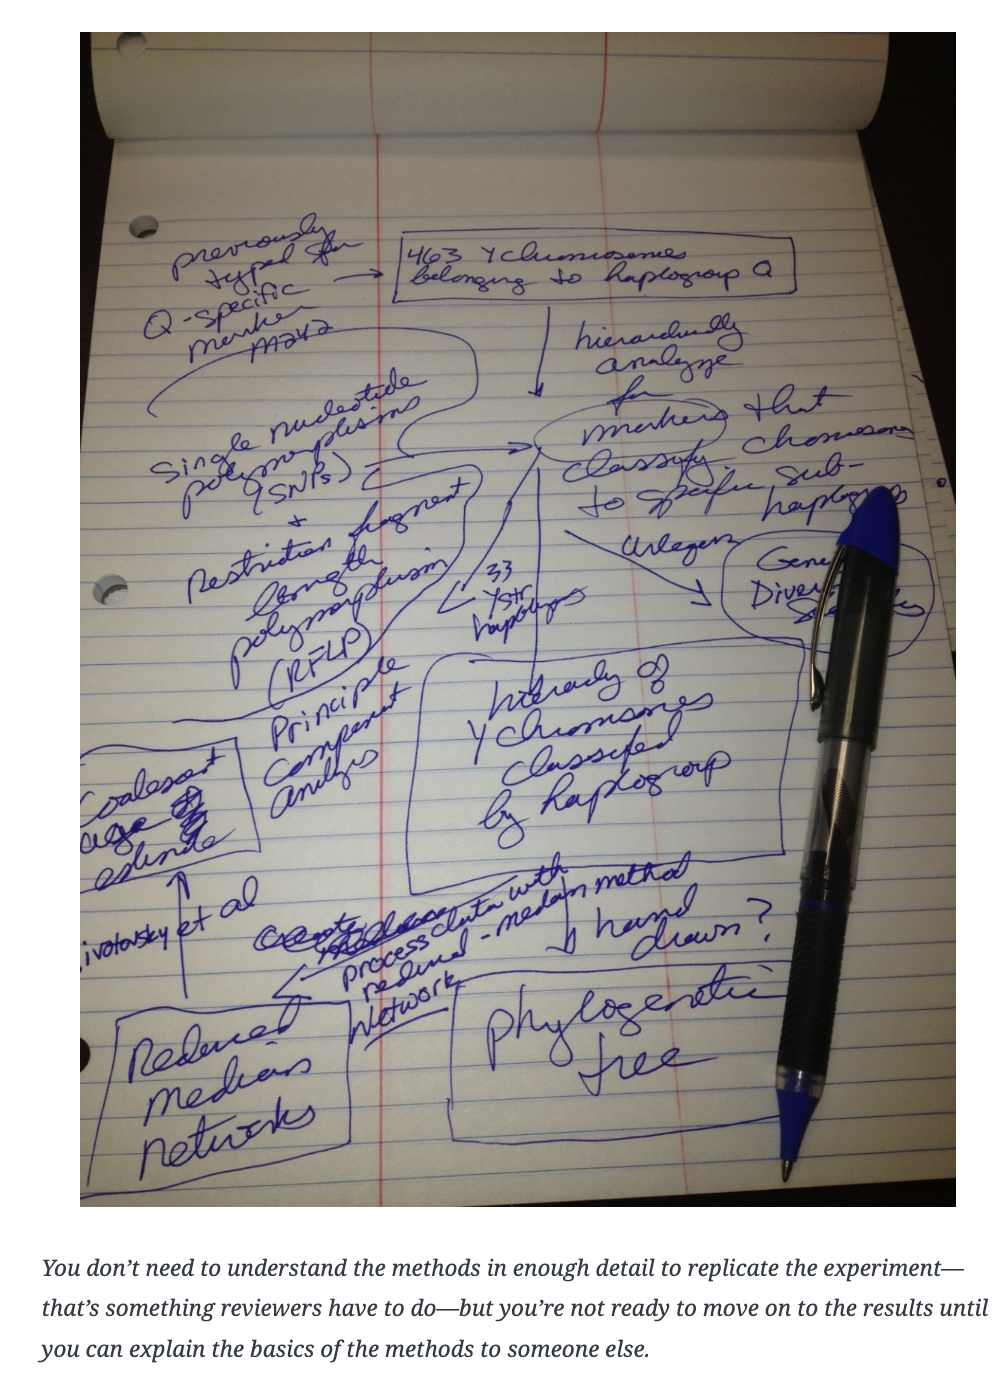 previously
typed for
Q-specific
marker
M242
463 Y chromosomes
belonging to haplogroup Q
hierarchically
analyze
for
markers that
classify chomosomes
to specific sub-
haplogroups
Single nucleotide
polymorphisms
(SNPs)
+
Restriction fragment
length
polymorphism
(RFLP)
33
Ystr
haplotypes
Arlequin
Gene
Diver
Principle
component
analysis
hierachy of
Y chromosomes
classified
by haplogroup
Coalescent
age
estimate
ivotovsky et al
process data with
reduced-median method
Network
hand
drawn?
Reduced
median
networks
phylogenetic
tree
You don’t need to understand the methods in enough detail to replicate the experiment—
that’s something reviewers have to do—but you’re not ready to move on to the results until
you can explain the basics of the methods to someone else.